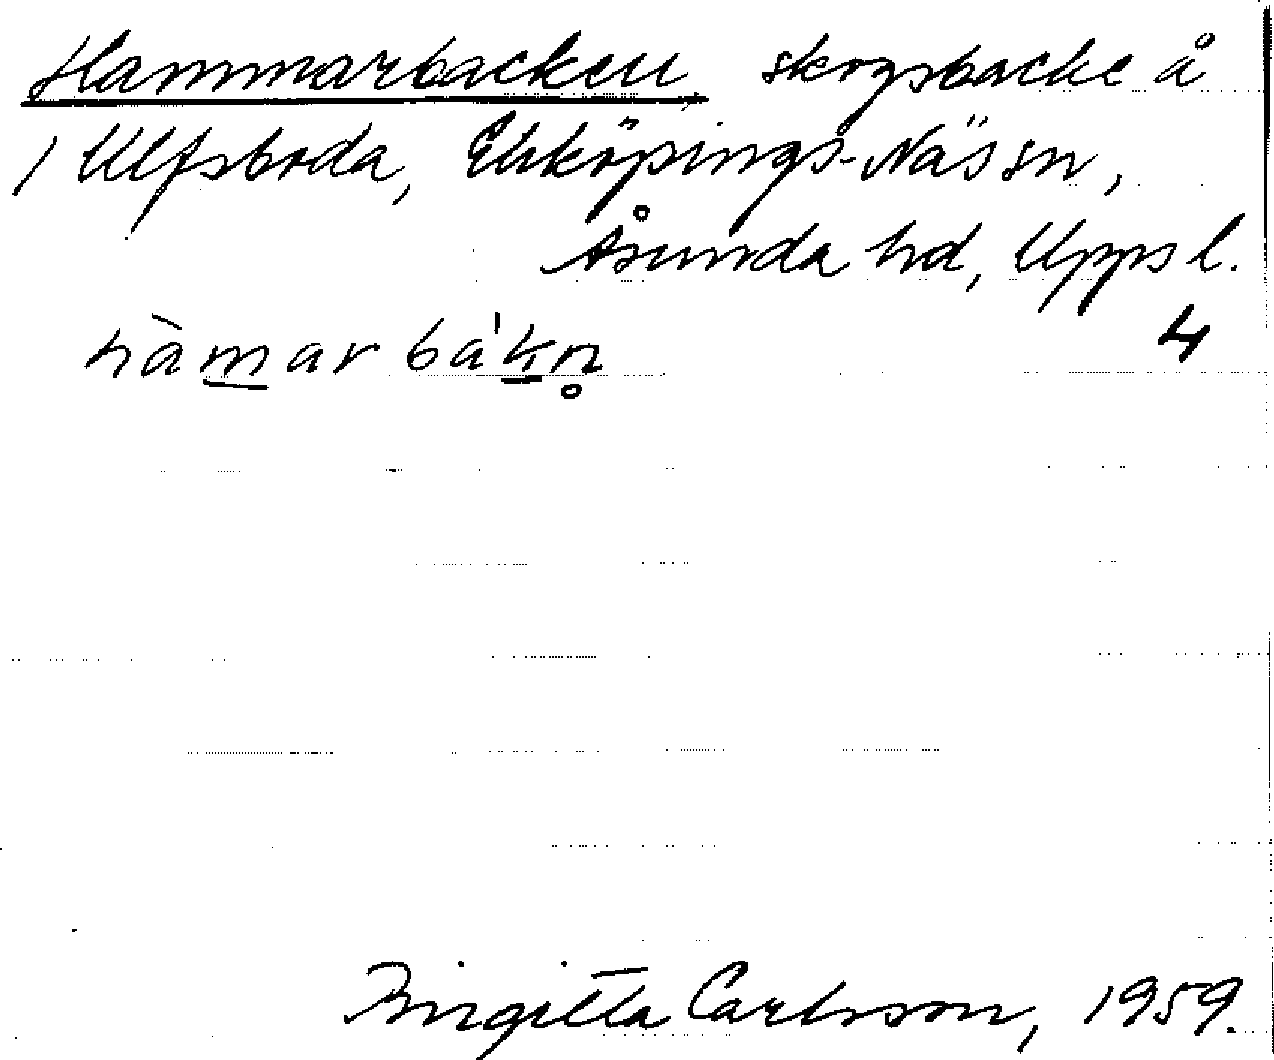 Hammarbacken, skogsbacke å
1 Ulfsboda, Enköpings-Näs sn,
Åsunda hd, Uppsl.
hàmar bák̠n̥
4
Birgitta Carlsson, 1959.